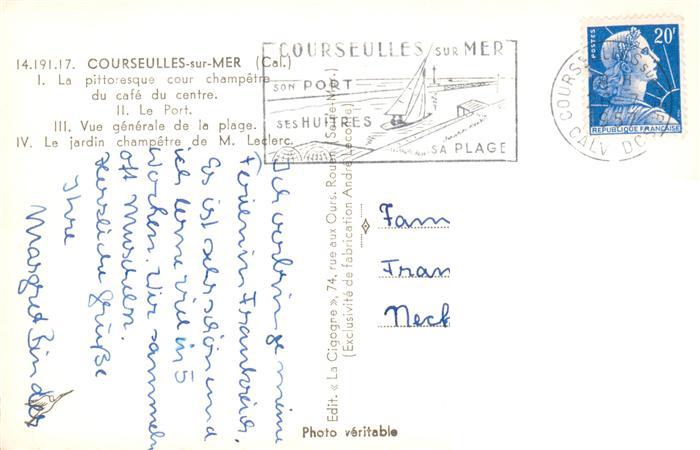 14.191.17. COURSEULLES-sur-MER (Cal.)
I. La pittoresque cour champêtre
du café du centre.
II. Le Port.
III. Vue générale de la plage.
IV. Le jardin champêtre de M. Leclerc.
COURSEULLES SUR MER
SON PORT
SES HUITRES
SA PLAGE
POSTES
20F
REPUBLIQUE FRANÇAISE
COURSEULLES
CALVADOS
Ich verbringe meine
Ferien in Frankreich.
Es ist sehr schön und
ich lerne viel in 5
Wochen. Wir sammeln
oft Muscheln.
Herzliche Grüße
Ihre
Margret Binder
Edit. « La Cigogne », 74, rue aux Ours. Rouen
(Exclusivité de fabrication André Leconte)
Fam
Fran
Neck
Photo véritable